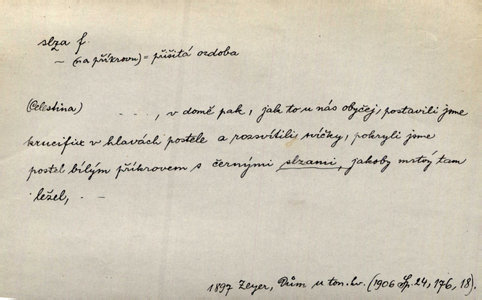 slza f.
~ (na příkrovu) = přišitá ozdoba
(Celestina) - - -, v domě pak, jak to u nás obyčej, postavili jsme
krucifix v hlavách postele a rozsvítili svíčky, pokryli jsme
postel bílým příkrovem s černými slzami, jakoby mrtvý tam
ležel, - -
1897 Zeyer, Dům u ton. hv. (1906 Sp. 24, 176, 18).